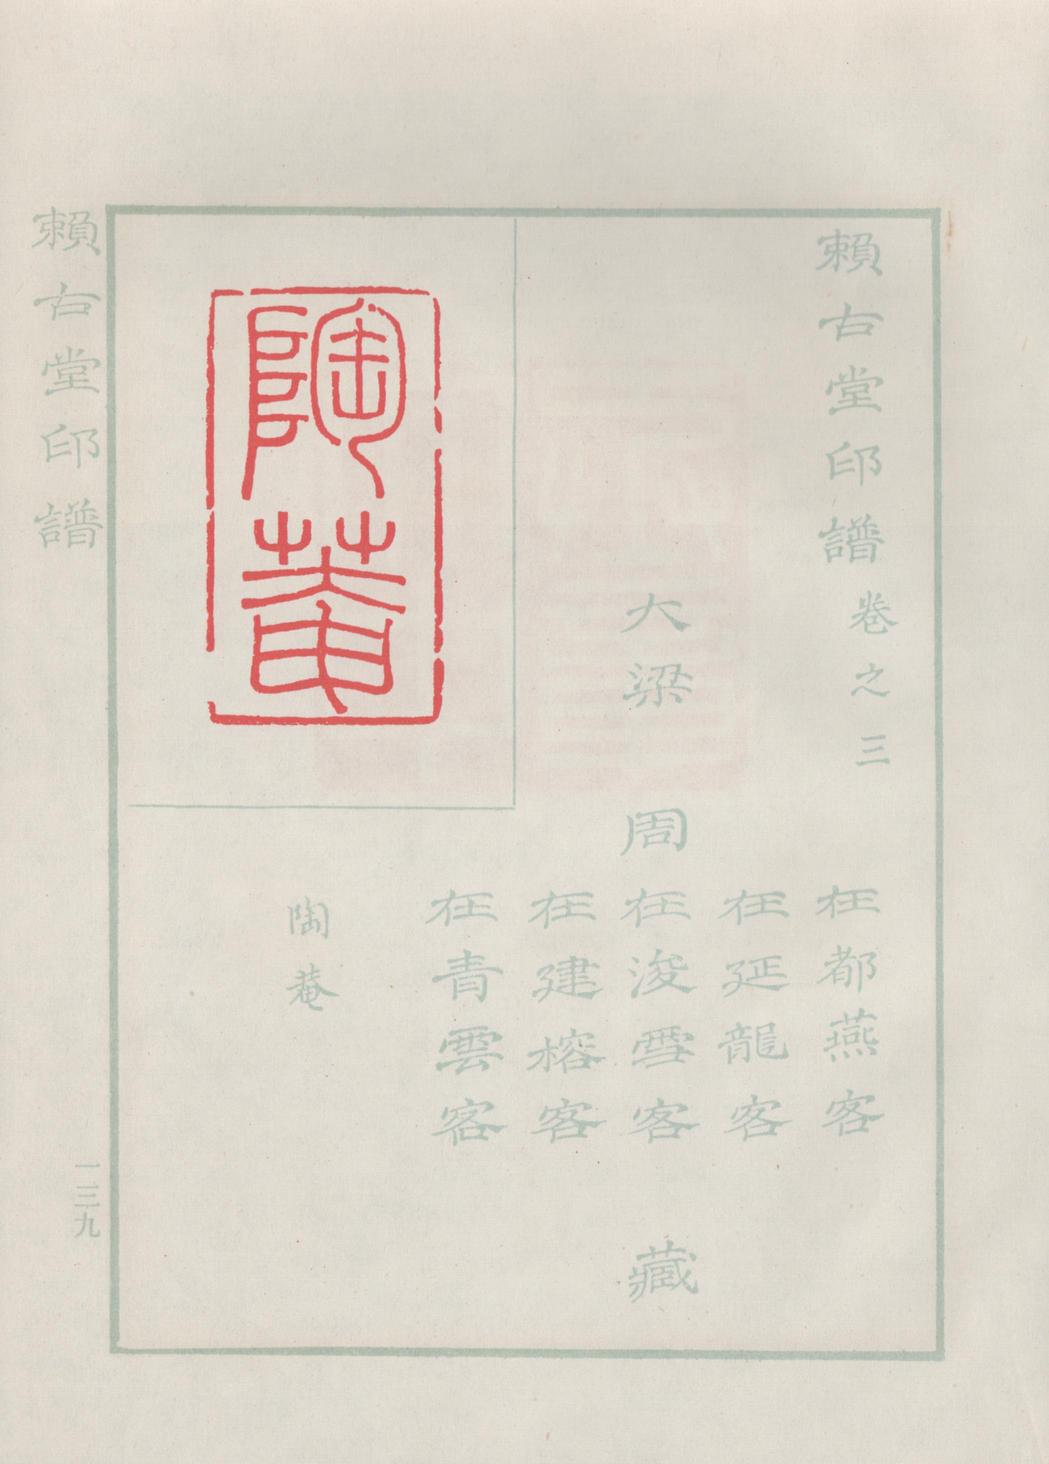 賴古堂印譜卷之三
大梁
周
在都燕客
在延龍客
在浚雪客
在建榕客
在青雲客
藏
陶菴
陶菴
賴古堂印譜
一三九